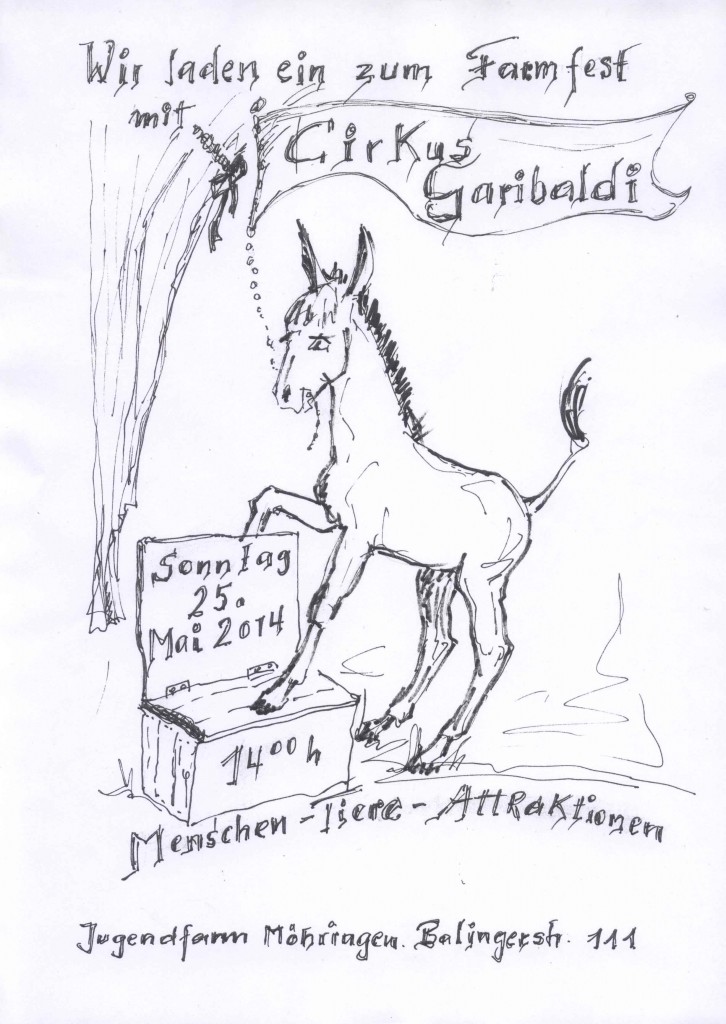 Wir laden ein zum Farmfest
mit
Cirkus
Garibaldi
Sonntag
25.
Mai 2014
14⁰⁰ h
Menschen - Tiere - Attraktionen
Jugendfarm Möhringen. Balingerstr. 111